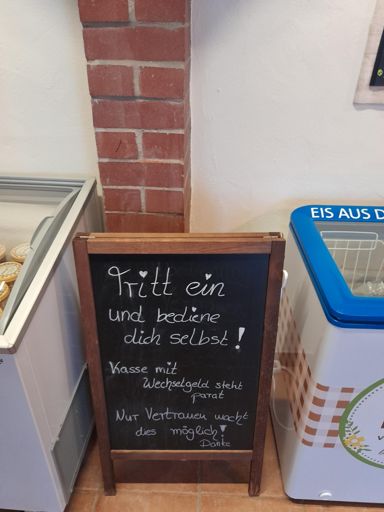 EIS AUS D
Tritt ein
und bediene
dich selbst!
Kasse mit
Wechselgeld steht
parat
Nur Vertrauen macht
dies möglich!
Danke